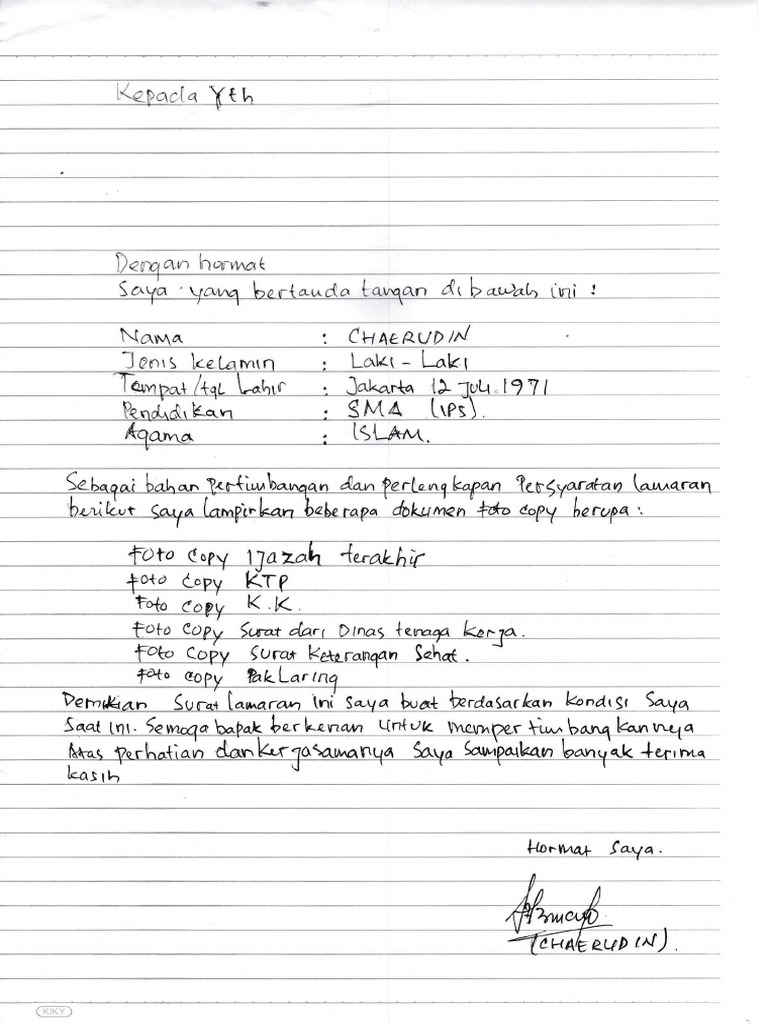 Kepada Yth
Dengan hormat
Saya yang bertanda tangan dibawah ini :
Nama : CHAERUDIN
Jenis kelamin : Laki - Laki
Tempat/tgl Lahir : Jakarta 12 Juli 1971
Pendidikan : SMA (IPS).
Agama : ISLAM.
Sebagai bahan pertimbangan dan perlengkapan Persyaratan lamaran
berikut saya lampirkan beberapa dokumen foto copy berupa :
Foto copy Ijazah terakhir
Foto copy KTP
Foto copy K.K.
Foto copy Surat dari Dinas tenaga kerja.
Foto copy Surat Keterangan Sehat.
Foto copy PakLaring
Demikian Surat lamaran ini saya buat berdasarkan kondisi saya
saat ini. Semoga bapak berkenan untuk mempertimbangkannya
Atas perhatian dan kerjasamanya saya sampaikan banyak terima
kasih
Hormat saya.
(CHAERUDIN).
KIKY